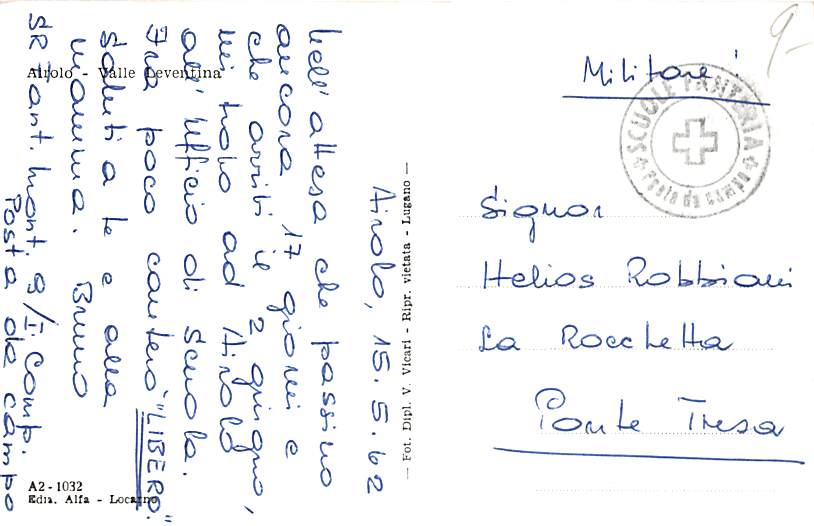 Airolo, 15.5.62
Nell'attesa che passino
ancora 17 giorni e
che arrivi il 2 giugno,
mi trovo ad Airolo
all'Ufficio di Scuola.
Fra poco canterò "LIBERO."
Saluti a te e alla
mamma. Bruno
SR Fant. Mont. 9/I Comp.
Posta da campo
Airolo - Valle Leventina
A2 - 1032
Ediz. Alfa - Locarno
— Fot. Dipl. V. Vicari - Ripr. vietata - Lugano —
9-
Militare!
SCUOLE FANTERIA
Posta da campo
Signor
Helios Robbiani
La Rocchetta
Ponte Tresa